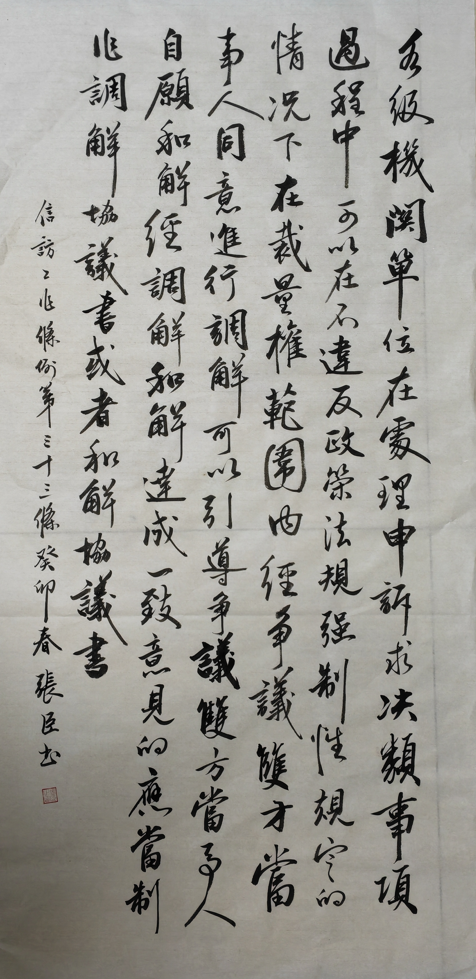 各級機關單位在處理申訴求决類事項
過程中可以在不違反政策法規强制性規定的
情况下在裁量權範圍内經争議雙方當
事人同意進行調解可以引導争議雙方當事人
自願和解經調解和解達成一致意見的應當制
作調解協議書或者和解協議書
信訪工作條例第三十三條癸卯春張臣书